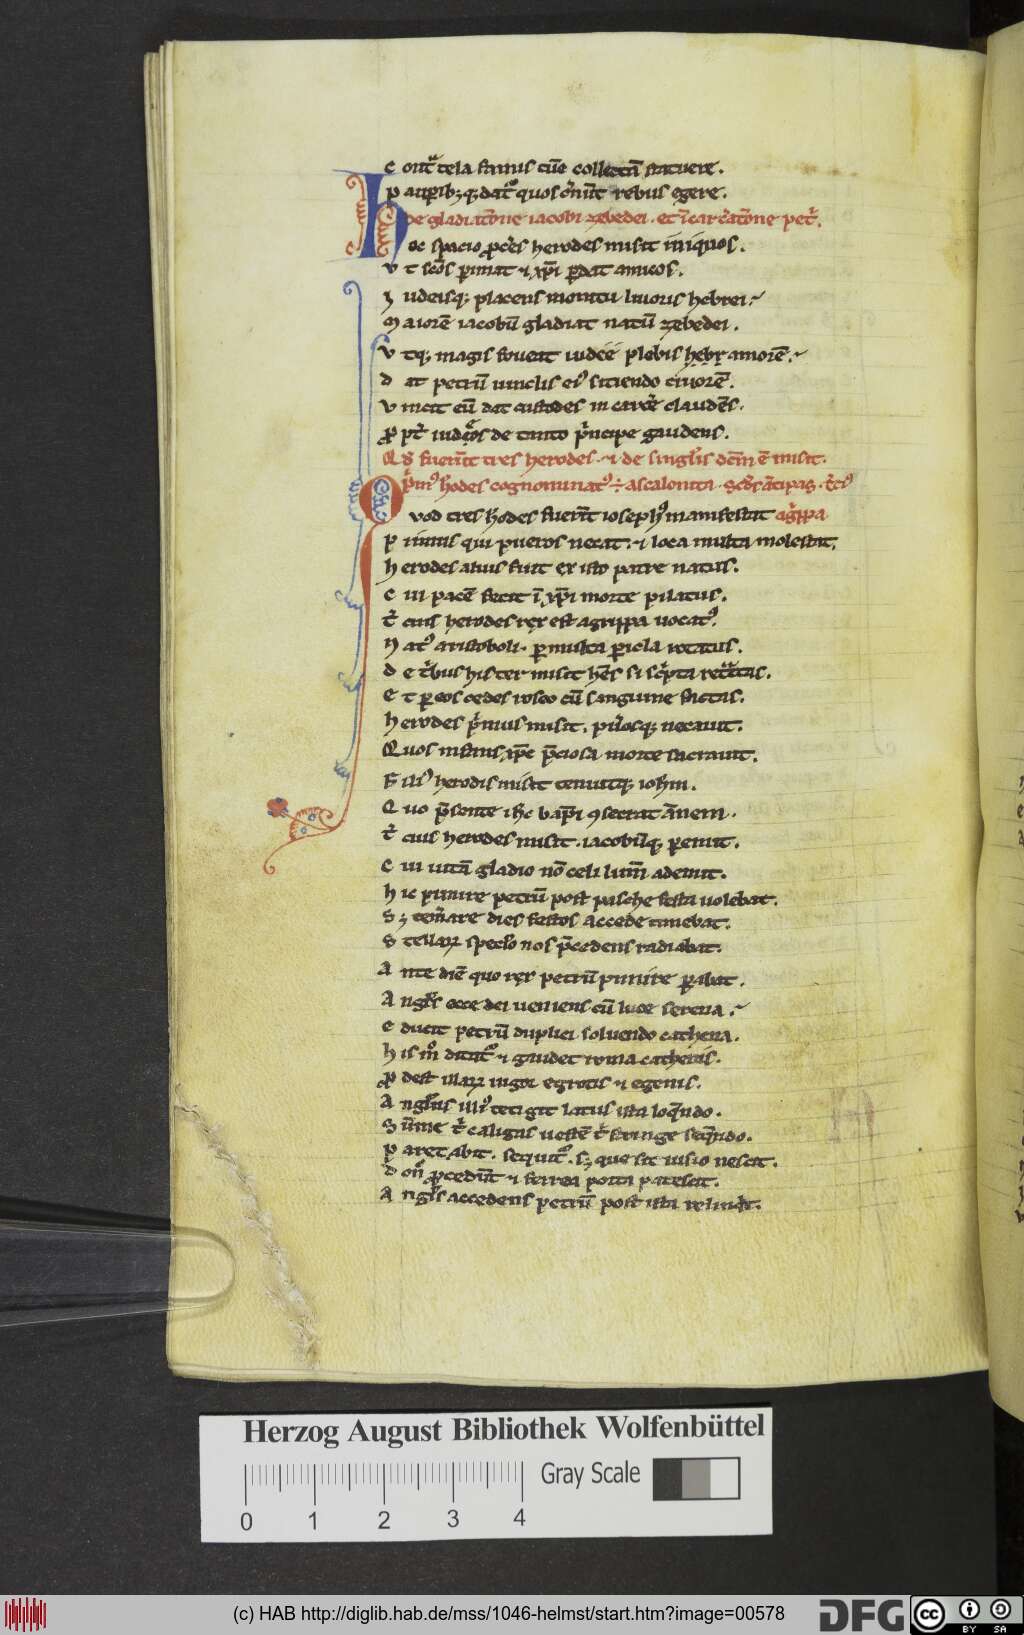 Contͣ tela famis cūc collectā statuere.
Pauꝑib; q; datˀ quos cˀnūt rebus egere.
de gladiatōne iacobi zebedei. et ī carcˀatōne petˀ.
Hoc spacio ꝓcēs herodes misit iniquos.
Vt scōs pimat ⁊ xp̄i ꝑdat amicos.
Iudeisq; placens monitu liuoris hebrei
Maiorē iacobū gladiat natū zebedei.
Vtq; magis foueat iudee plebis amorē.
Dat petrū uinclis eiˀ sitiendo cruorē.
Vincit eū dat custodes in carcˀe claudēs.
ꝓptˀ iudeos de tanto pˀncipe gaudens.
Qd fuerūt tres herodes ⁊ de singlˀis dcm̄ ē misit.
pˀmˀ hˀodes cognominatˀ ÷ ascalonita. scds ātipas. tˀciˀ
Quod tres hˀodes fuerūt iosephˀ manifestat agˀppa
Primus qui pueros necat. ⁊ loca multa molestat.
Herodes alius fuit ex isto patre natus.
Cui pacē fecit ī xp̄i morte pilatus.
Tˀcius herodes rex est agrippa uocatˀ.
Natˀ aristoboli. ꝑ multa ꝑicla rotatus.
De tˀbus his ter misit hēs si scˀpta retͣctas.
Et ꝑ eos cedes rosco cū sanguine factas.
Herodes pˀmus misit. puˀosq; necauit.
Quos infans xp̄c p̄ciosa morte sacrauit.
Filiˀ herodis misit tenuitq; iohm̄.
Quo p̄sente ihc bap̄ti ꝯsecrat āmem.
Tˀcius herodes misit. iacobūq; ꝑemit.
Cui uitā gladio nō celi lum̄ ademit.
Hic punire petrū post pasche festa uolebat.
S; temˀare dies festos accede timebat.
Stellaꝝ speclō nos p̄cedens radiabat.
Ante diē quo rex petrū punire ꝑabat.
Anglˀs ecce dei ueniens cū luce serena.
Educit petrū duplici soluendo cathena.
His mō ditatˀ ⁊ gaudet roma cathenis.
ꝓdest illaꝝ uigor egrotis ⁊ egenis.
Anglˀus illiˀ tetigit latus ista loqˀndo.
Sūme tˀ caligas uestē tˀ stringe seqˀndo.
Paret abit. sequitˀ. s; que sit uisio nescit.
Donˀ ꝓcedūt ⁊ ferrea porta patescit.
Anglˀs accedens petrū post ista relinqˀt.
Herzog August Bibliothek Wolfenbüttel
Gray Scale
0 1 2 3 4
(c) HAB http://diglib.hab.de/mss/1046-helmst/start.htm?image=00578
DFG
cc BY SA